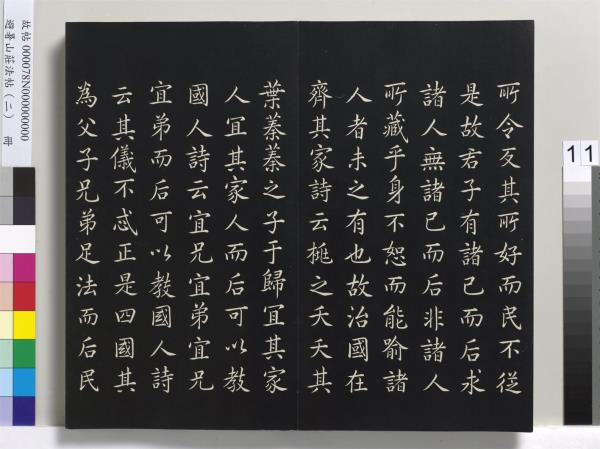 所令反其所好而民不從
是故君子有諸己而后求
諸人無諸己而后非諸人
所藏乎身不恕而能喻諸
人者未之有也故治國在
齊其家詩云桃之夭夭其
葉蓁蓁之子于歸宜其家
人宜其家人而后可以教
國人詩云宜兄宜弟宜兄
宜弟而后可以教國人詩
云其儀不忒正是四國其
為父子兄弟足法而后民
故帖 000078N000000000
避暑山莊法帖(二) 冊
11